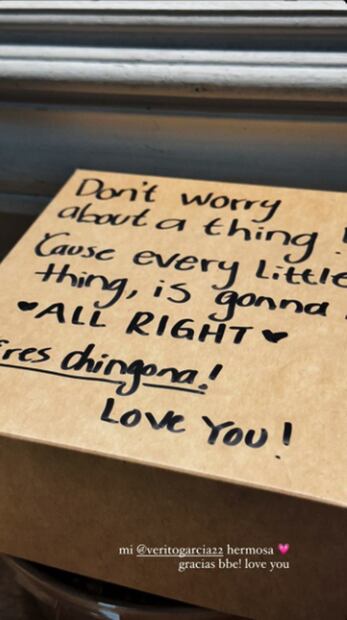 Don't worry
about a thing!
'Cause every Little
thing, is gonna
♥ALL RIGHT♥
Eres chingona!
Love You!
mi @veritogarcia22 hermosa 💗
gracias bbe! love you